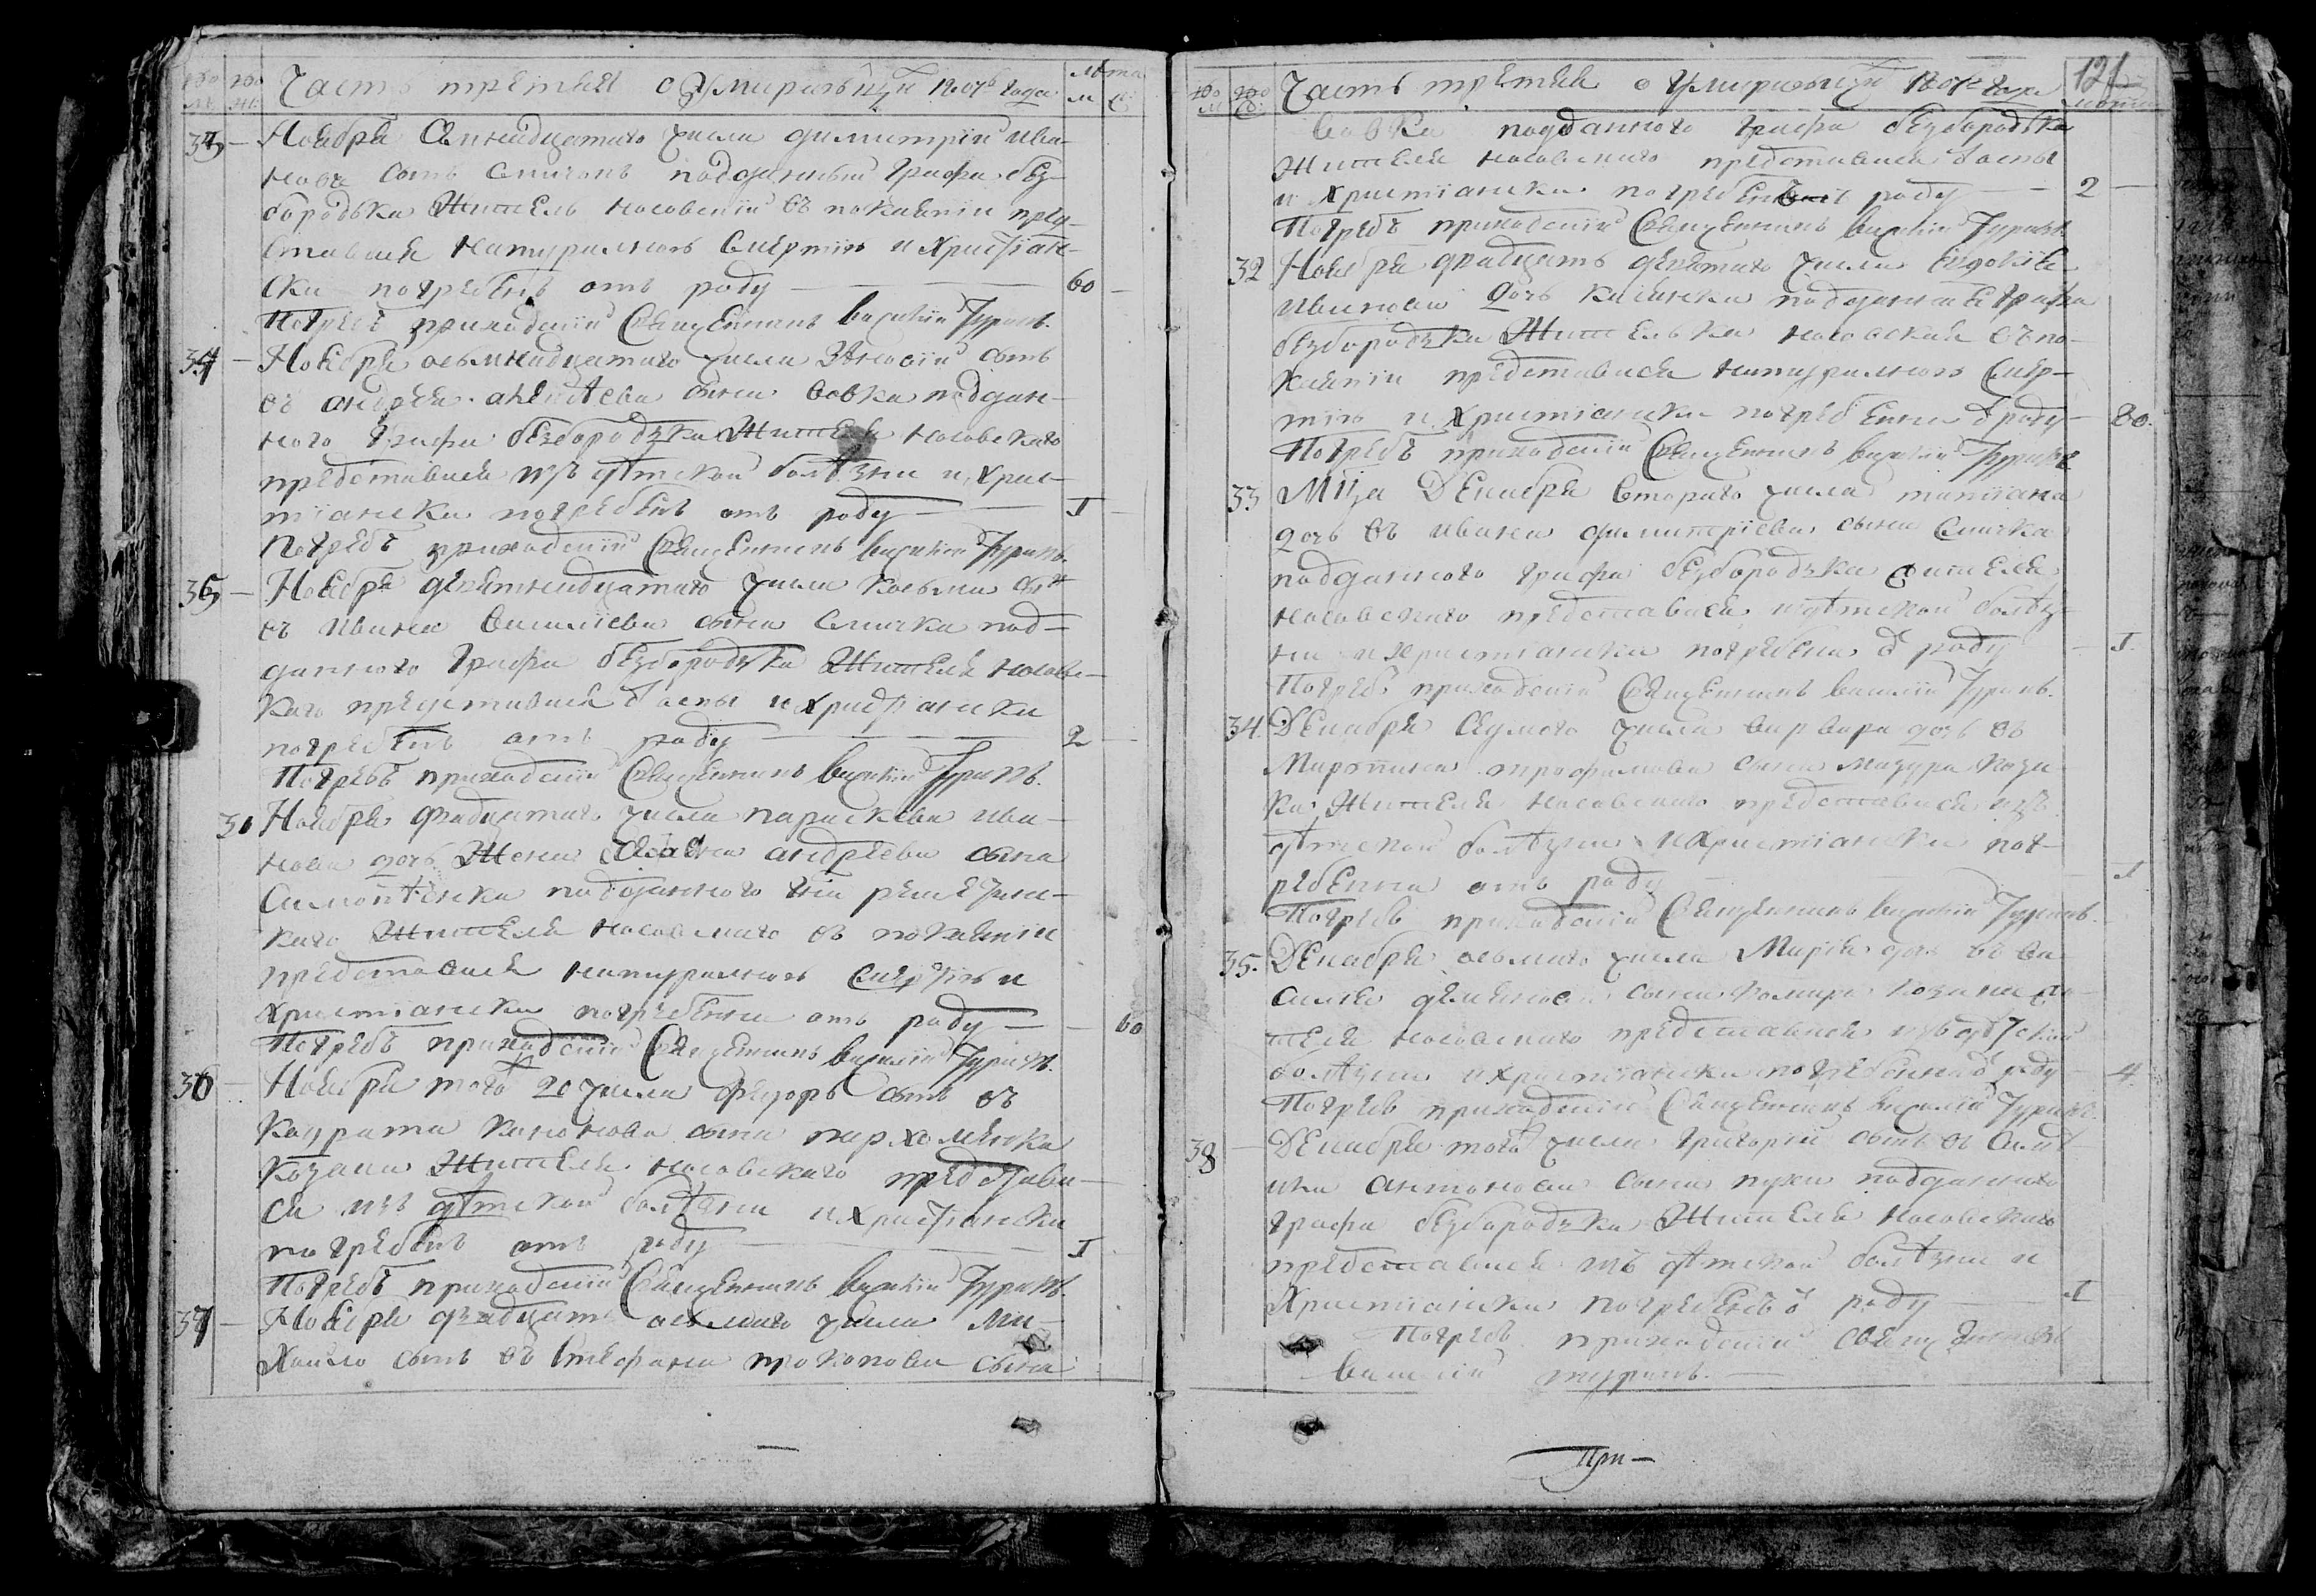 Часть третья о умирающихъ 1807 года
33 Ноября семнадцатаго числа димитрій ива-
новъ сынъ подданный графа без-
бородька житель носовскій въ покаяніи пред-
ставися натуральною смертію и христіан-
ски погребенъ отъ роду 60
Погребъ приходскій священникъ василій Туринъ.
34 Ноября осьмнадцатаго числа сынъ
въ андрея сына вовка поддан-
ного графа безбородька жителя носовскаго
представися изъ дѣтской болѣзни и хрис-
тіански погребенъ отъ роду 1
Погребъ приходскій священникъ василій Туринъ.
35 Ноября девятнадцатаго числа косьма сынъ
въ ивана василіева сына сличка под-
данного графа безбородька жителя носовс-
каго представися ѿ оспы и христіански
погребенъ отъ роду 2
Погребъ приходскій священникъ василій Туринъ.
31 Ноября двадцятаго числа параскева ива-
нова дочь жена андреева сына
подданного
каго жителя носовскаго въ покаяніи
представися натуральною смертію и
христіански погребенна отъ роду 60
Погребъ приходскій священникъ василій Туринъ.
36 Ноября тогѡ 20 числа феѡдоръ сынъ въ
кондрата кононова сына пархоменка
козака жителя носовскаго представи-
ся изъ дѣтской болѣзни и христіански
погребенъ отъ роду 1
Погребъ приходскій священникъ василій Туринъ.
37 Ноября двадцать осьмаго числа ми-
хайло сынъ въ стефана прокопова сына
121
Часть третья о умирающихъ 1807 года
вовка подданного графа безбородька
жителя носовскаго представися ѿ оспы
и христіански погребенъ роду 2
Погребъ приходскій священникъ василій Туринъ.
32 Ноября двадцать девятаго числа евдокія
иванова дочь подданная графа
безбородька жителька носовская въ по-
каяніи представися натуральною смер-
тію и христіански погребенна ѿ роду 80.
Погребъ приходскій священникъ василій Туринъ.
33 Мѣца Декабря втораго числа татіана
дочь въ ивана димитріева сына сличка
подданного графа безбородька жителя
носовскаго представися из дѣтской болѣз-
ни и христіански погребена ѿ роду 1.
Погребъ приходскій священникъ василій Туринъ.
34. Декабря седмого числа варвара дочь въ
трофимова сына мазура коза-
ка жителя носовскаго представися изъ
дѣтской болѣзни и христіански пог-
ребенна отъ роду 1
Погребъ приходскій священникъ василій Туринъ.
35. Декабря осьмаго числа Марія дочь въ ва-
силія сына козака жи-
теля носовскаго представися изъ дѣтской
болѣзни и христіански погребенна ѿ роду 4.
Погребъ приходскій священникъ василій Туринъ.
38 Декабря тогѡ числа григорій сынъ въ
антонова сына подданного
графа безбородька жителя носовскаго
представися изъ дѣтской болѣзни и
христіански погребенъ ѿ роду 1
Погребъ приходскій священникъ
василій туринъ.
При-